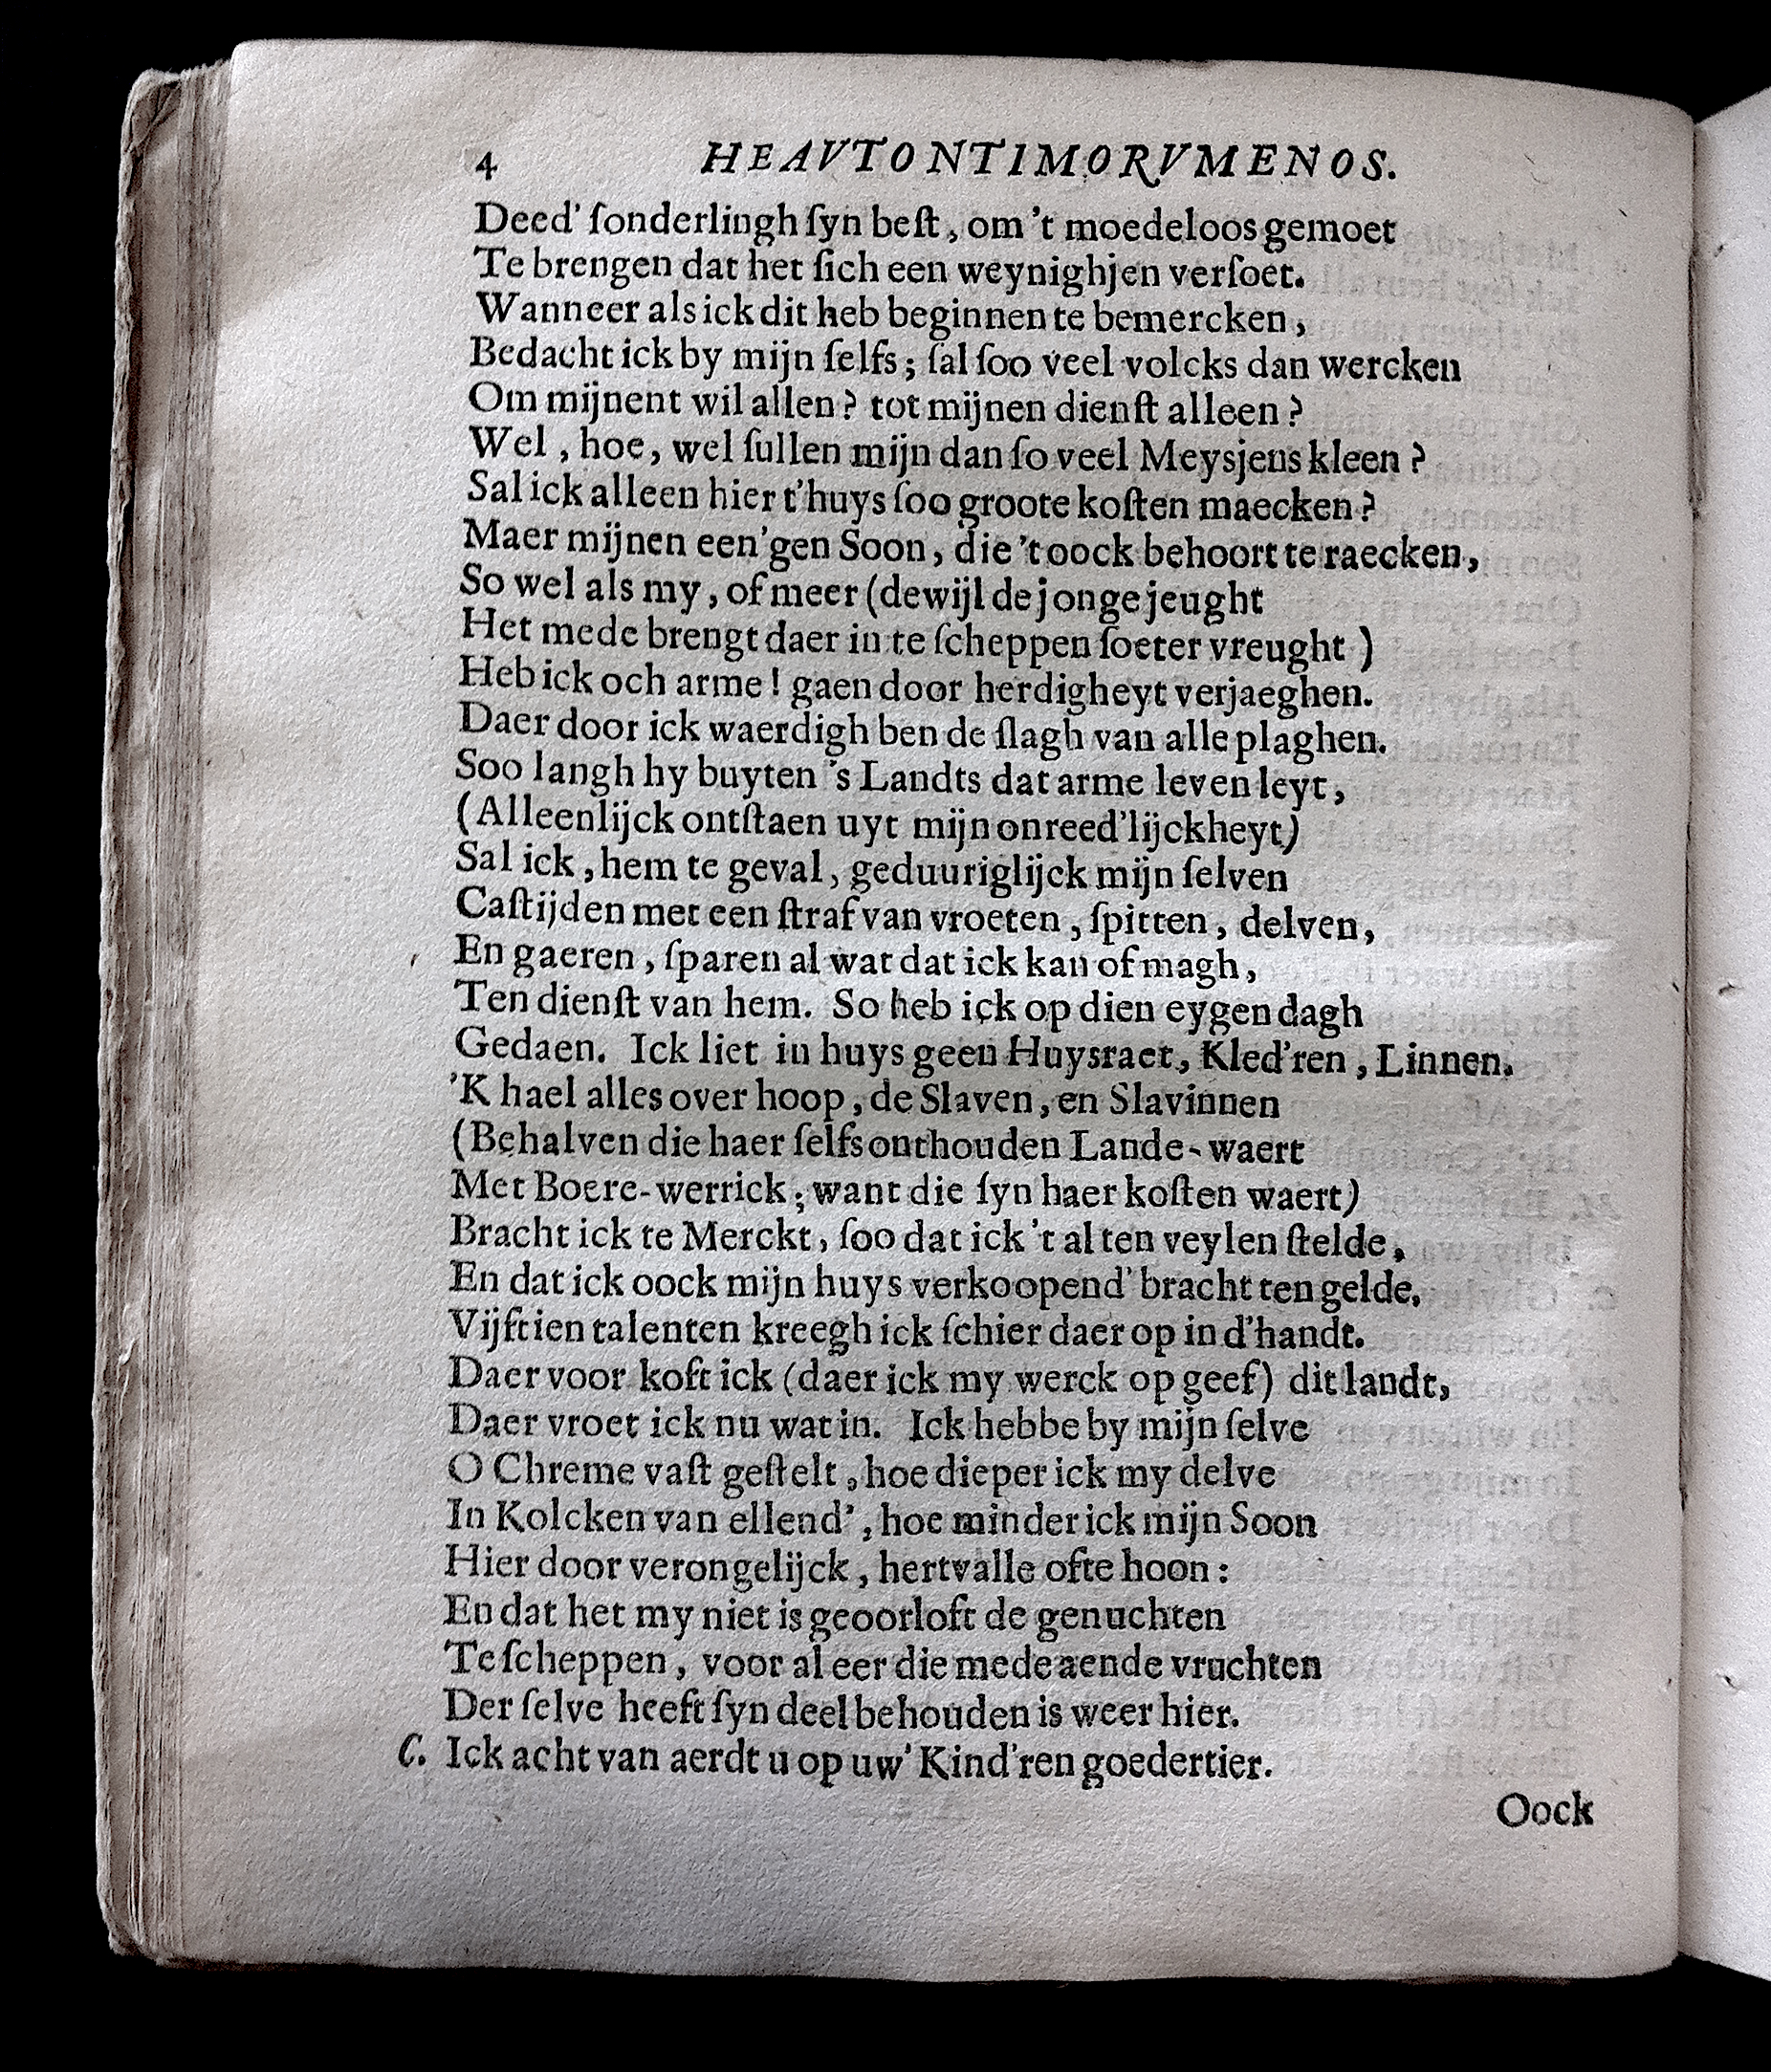 4 HEAVTONTIMORVMENOS.
Deed' ſonderlingh ſyn beſt, om 't moedeloos gemoet
Te brengen dat het ſich een weynighjen verſoet.
Wanneer als ick dit heb beginnen te bemercken,
Bedacht ick by mijn ſelfs; ſal ſoo veel volcks dan wercken
Om mijnent wil allen? tot mijnen dienſt alleen?
Wel, hoe, wel ſullen mijn dan ſo veel Meysjens kleen?
Sal ick alleen hier t'huys ſoo groote koſten maecken?
Maer mijnen een'gen Soon, die 't oock behoort te raecken,
So wel als my, of meer (dewijl de jonge jeught
Het mede brengt daer in te ſcheppen ſoeter vreught)
Heb ick och arme! gaen door herdigheyt verjaeghen.
Daer door ick waerdigh ben de ſlagh van alle plaghen.
Soo langh hy buyten 's Landts dat arme leven leyt,
(Alleenlijck ontſtaen uyt mijn onreed'lijckheyt)
Sal ick, hem te geval, geduuriglijck mijn ſelven
Caſtijden met een ſtraf van vroeten, ſpitten, delven,
En gaeren, ſparen al wat dat ick kan of magh,
Ten dienſt van hem. So heb ick op dien eygen dagh
Gedaen. Ick liet in huys geen Huysraet, Kled'ren, Linnen.
'K hael alles over hoop, de Slaven, en Slavinnen
(Behalven die haer ſelfs onthouden Lande-waert
Met Boere-werrick; want die ſyn haer koſten waert)
Bracht ick te Merckt, ſoo dat ick 't al ten veylen ſtelde,
En dat ick oock mijn huys verkoopend' bracht ten gelde,
Vijftien talenten kreegh ick ſchier daer op in d'handt.
Daer voor koft ick (daer ick my werck op geef) dit landt,
Daer vroet ick nu wat in. Ick hebbe by mijn ſelve
O Chreme vaſt geſtelt, hoe dieper ick my delve
In Kolcken van ellend', hoe minder ick mijn Soon
Hier door verongelijck, hertvalle ofte hoon:
En dat het my niet is geoorloft de genuchten
Te ſcheppen, voor al eer die medeaende vruchten
Der ſelve heeft ſyn deel behouden is weer hier.
C. Ick acht van aerdt u op uw' Kind'ren goedertier.
Oock